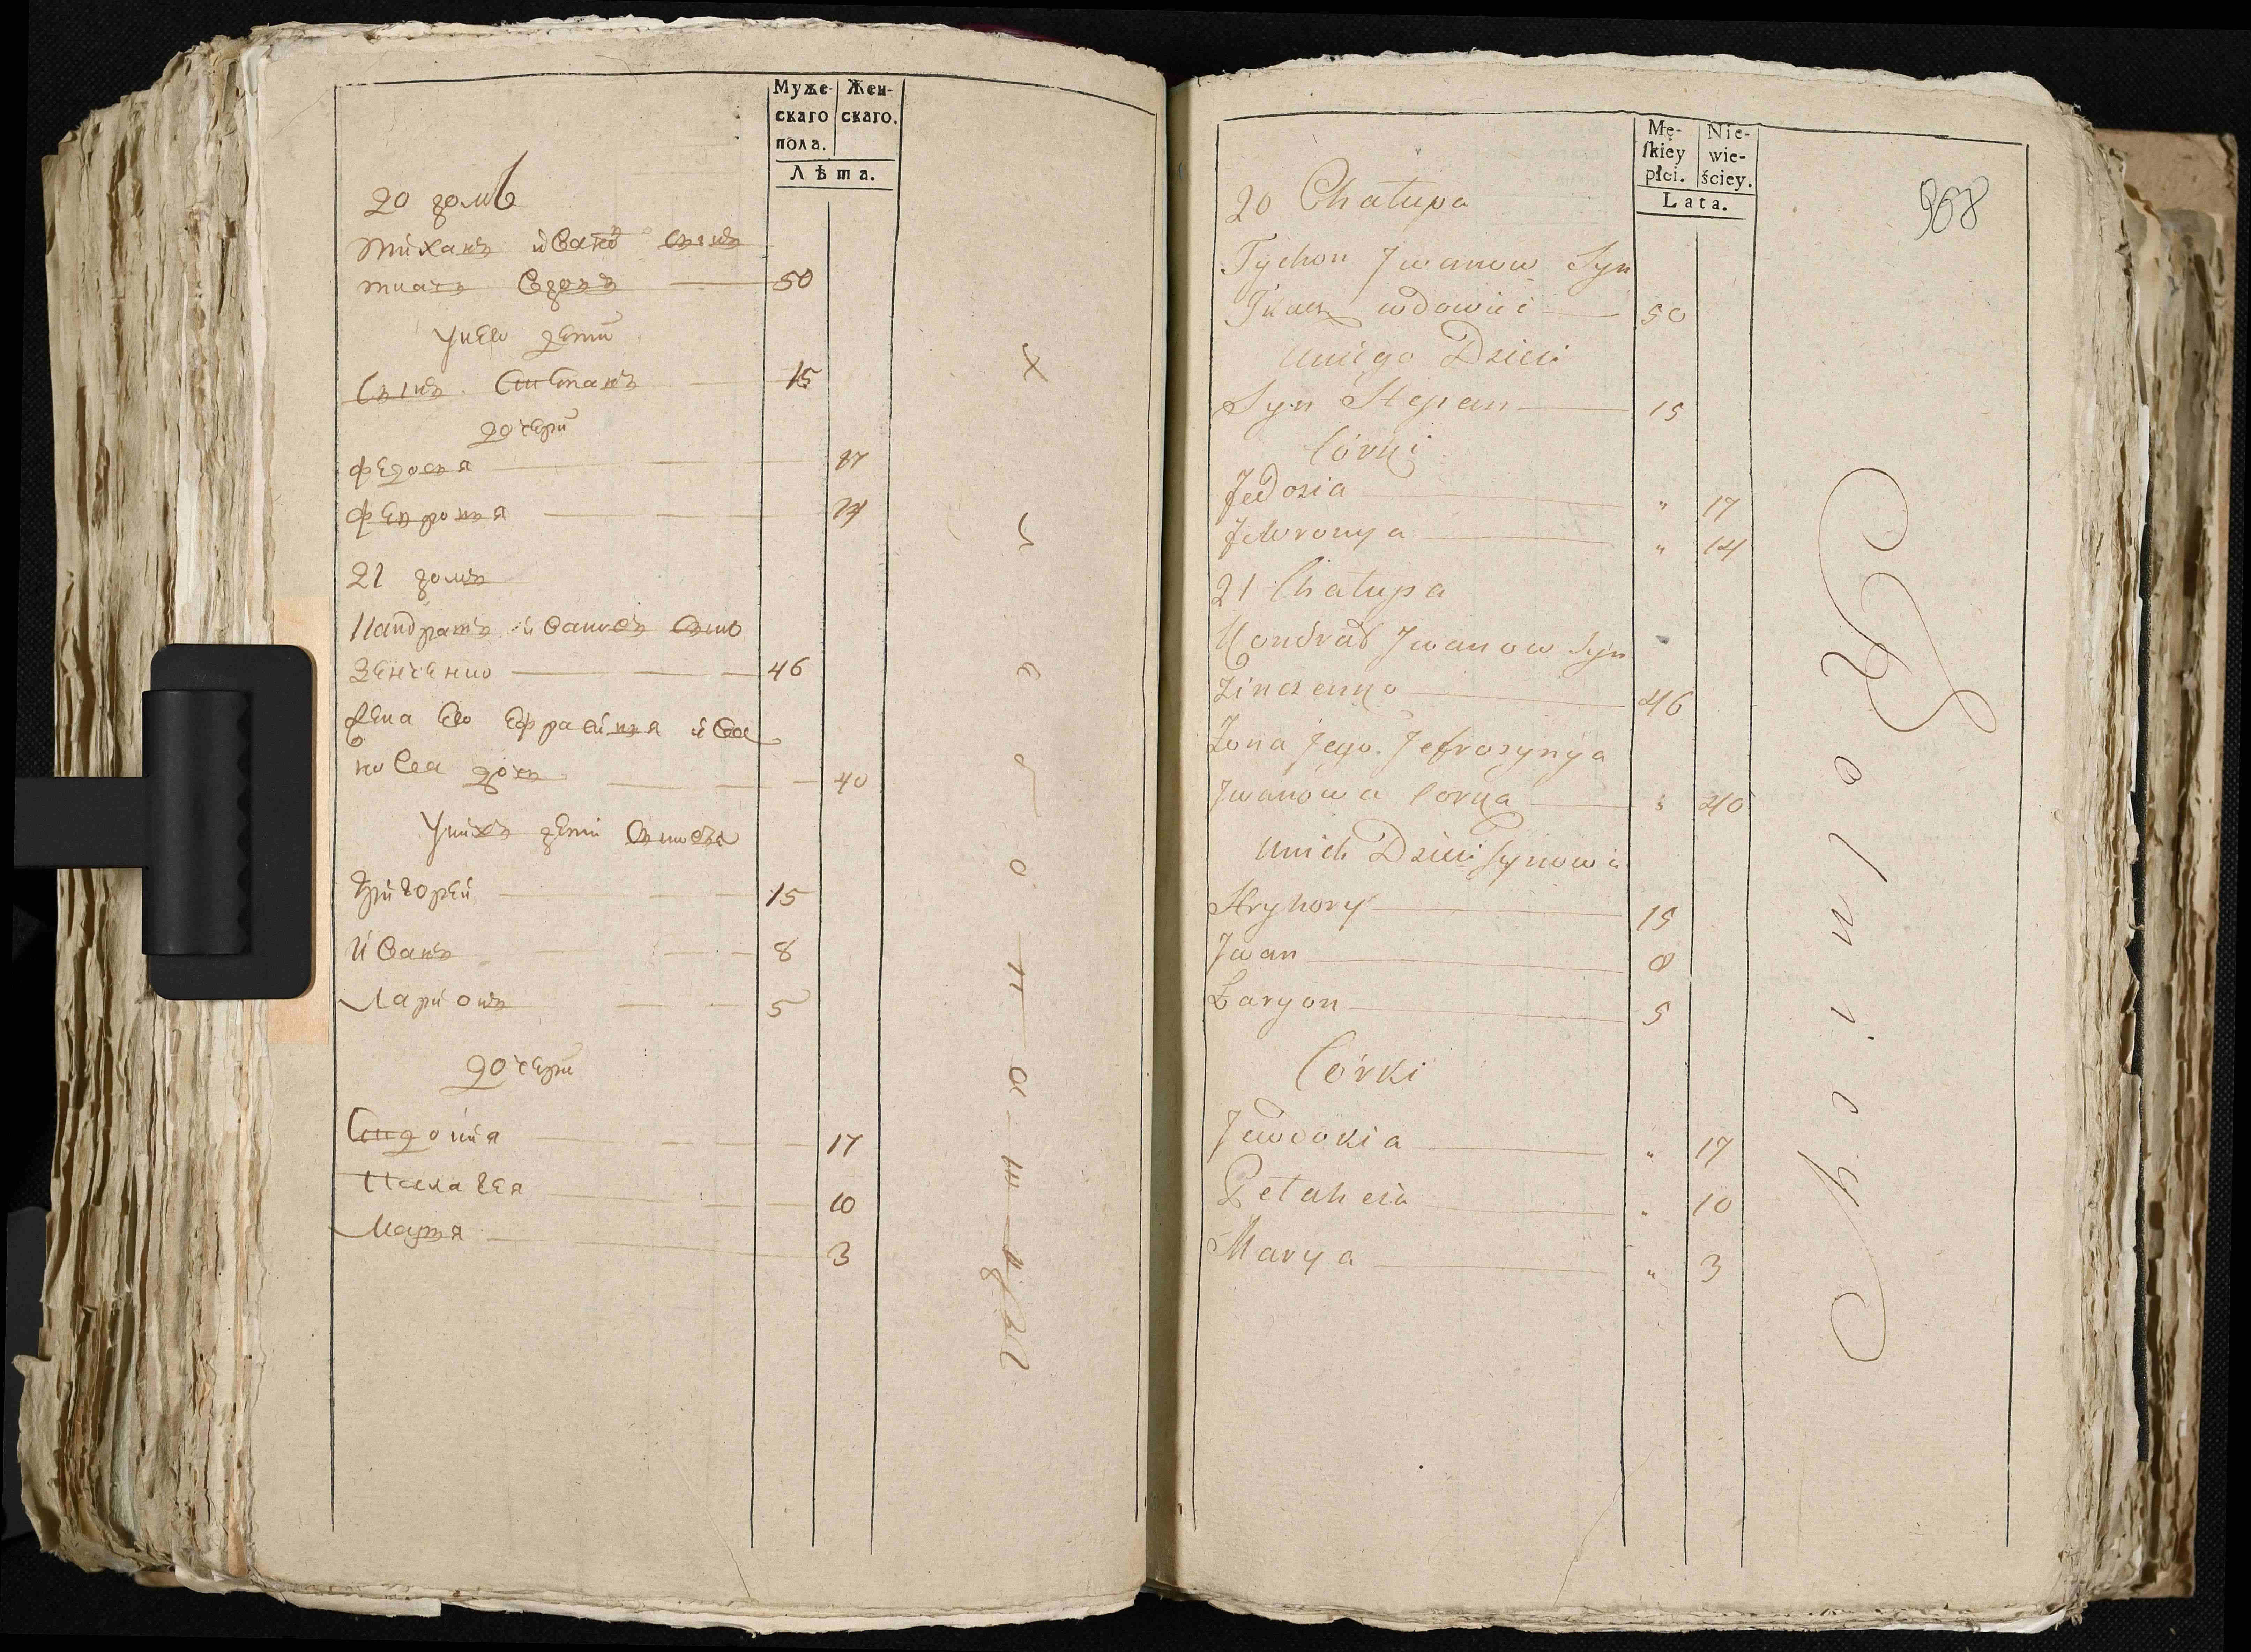 Муже-
скаго
пола.
Жен-
скаго.
Лѣта.
20 домъ
Тиханъ ивановъ сынъ
ткачъ вдовъ 50
Унего дети
Сынъ Степанъ 15
дочери
Федосья 17
Февронья 14
21 домъ
Кандратъ ивановъ сынъ
Зенченко 46
Жена его Ефрасинья ива
нова дочь 40
Унихъ дети сыновья
Григорей 15
Иванъ 8
Ларионъ 5
дочери
10
Марья 3
Хлебопашецъ
Mę-
ſkiey
płci.
Nie-
wie-
ściey.
Lata.
20 Chałupa
Tychon Jwanow Syn
Tkacz wdowiec 50
Uniego Dzieci
Syn Stepan 15
Córki
Fedosia " 17
Fewronya " 14
21 Chałupa
Kondrad Jwanow Syn
Zinczenko 46
Żona Jego Jefrosynya
Jwanowa Corka " 40
Unich Dzieci Synowie
Hryhory 15
Jwan 8
Laryon 5
Córki
Jewdokia " 17
Pelaheia " 10
Marya " 3
Rolnicy